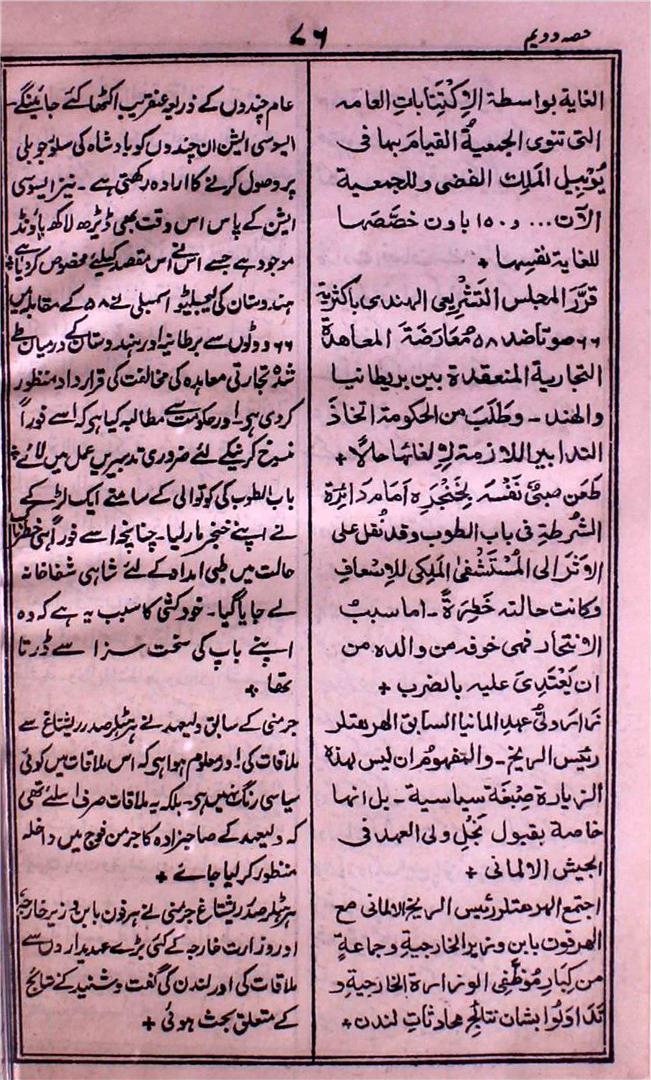 حصہ دویم
٧٦
الغاية بواسطة الاِكْتِتَاباتِ العامہ
التى تنوى الجمعيةُ القيامَ بها فى
يُوبِيل المَلِك الفضى وللجمعية
الآن ١٥٠٠٠٠ باون خصَّصَها
للغاية نفسِها +
قرَّرَ المجلس التَشْرِيعى الهندى باكثرية
٦٦ صوتا ضد ٥٨ مُعَارَضَةَ المعاهدة
التجارية المنعقدة بين بريطانيا
والهند ـ وطَلَبَ من الحكومة اتخاذَ
التدابير اللازمة لِاِلغائها حالًا +
طعَن صبىٌّ نَفْسَہ بِخَنْجَرِہ اَمامَ دائرة
الشرطة فى باب الطوب وقد نُقل على
الاَثَرِ الى المُسْتَشْفىٰ المَلِكى للاِسْعافِ
وكانت حالته خَطِرَةً ـ اما سببُ
الانتحار فهى خوفه من والده من
ان يَعْتَدِىَ عليه بالضرب +
زارَ ولىُّ عهدِ المانيا السابق الهر هتلر
رئيس الريخ ـ والمفهومُ ان ليس لهذه
الزيارة صِبْغَة سياسية ـ بل انها
خاصة بقبول نَجْلِ ولى العهد فى
الجيش الالمانى +
اجتمع الهر هتلر رئيس الريخ الالمانى مع
الهر فون بابن وزير الخارجيةِ وجماعةٍ
من كبارِ مُوَظَّفِى الوزارة الخارجيةِ و
تَدَاوَلُوا بشان نتائِج محادثاتِ لندن +
عام چندوں کے ذریعہ عنقریب اکٹھا کئے جائینگے۔
ایسوسی ایشن ان چندوں کو بادشاہ کی سلور جوبلی
پر وصول کرنے کا ارادہ رکھتی ہے۔ نیز ایسوسی
ایشن کے پاس اس وقت بھی ڈیڑھ لاکھ پاؤنڈ
موجود ہے جسے اس نے اس مقصد کیلئے مخصوص کر دیا ہے +
ہندوستان کی لیجسلیٹو اسمبلی نے ٥٨ کے مقابلہ میں
٦٦ ووٹوں سے برطانیہ اور ہندوستان کے درمیان طے
شدہ تجارتی معاہدہ کی مخالفت کی قرارداد منظور
کر دی ہے۔ اور حکومت سے مطالبہ کیا ہے کہ اسے فوراً
منسوخ کرنیکے لئے ضروری تدبیریں عمل میں لائے +
باب الطوب کی کوتوالی کے سامنے ایک لڑکے
نے اپنے خنجر مار لیا۔ چنانچہ اسے فوراً ہی خطرناک
حالت میں طبی امداد کے لئے شاہی شفاخانہ
لے جایا گیا۔ خودکشی کا سبب یہ ہے کہ وہ
اپنے باپ کی سخت سزا سے ڈرتا
تھا +
جرمنی کے سابق ولیعہد نے ہر ہٹلر صدر ریشتاغ سے
ملاقات کی۔ اور معلوم ہوا ہے کہ اس ملاقات میں کوئی
سیاسی رنگ نہیں ہے۔ بلکہ یہ ملاقات صرف اسلئے تھی
کہ ولیعہد کے صاحبزادہ کا جرمن فوج میں داخلہ
منظور کر لیا جائے +
ہر ہٹلر صدر ریشتاغ جرمنی نے ہر فون بابن وزیر خارجہ
اور وزارت خارجہ کے کئی بڑے عہدیداروں سے
ملاقات کی اور لندن کی گفت و شنید کے نتائج
کے متعلق بحث ہوئی +